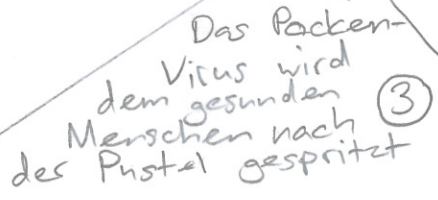 Das Pocken-
Virus wird
dem gesunden
Menschen nach
der Pustel gespritzt
3